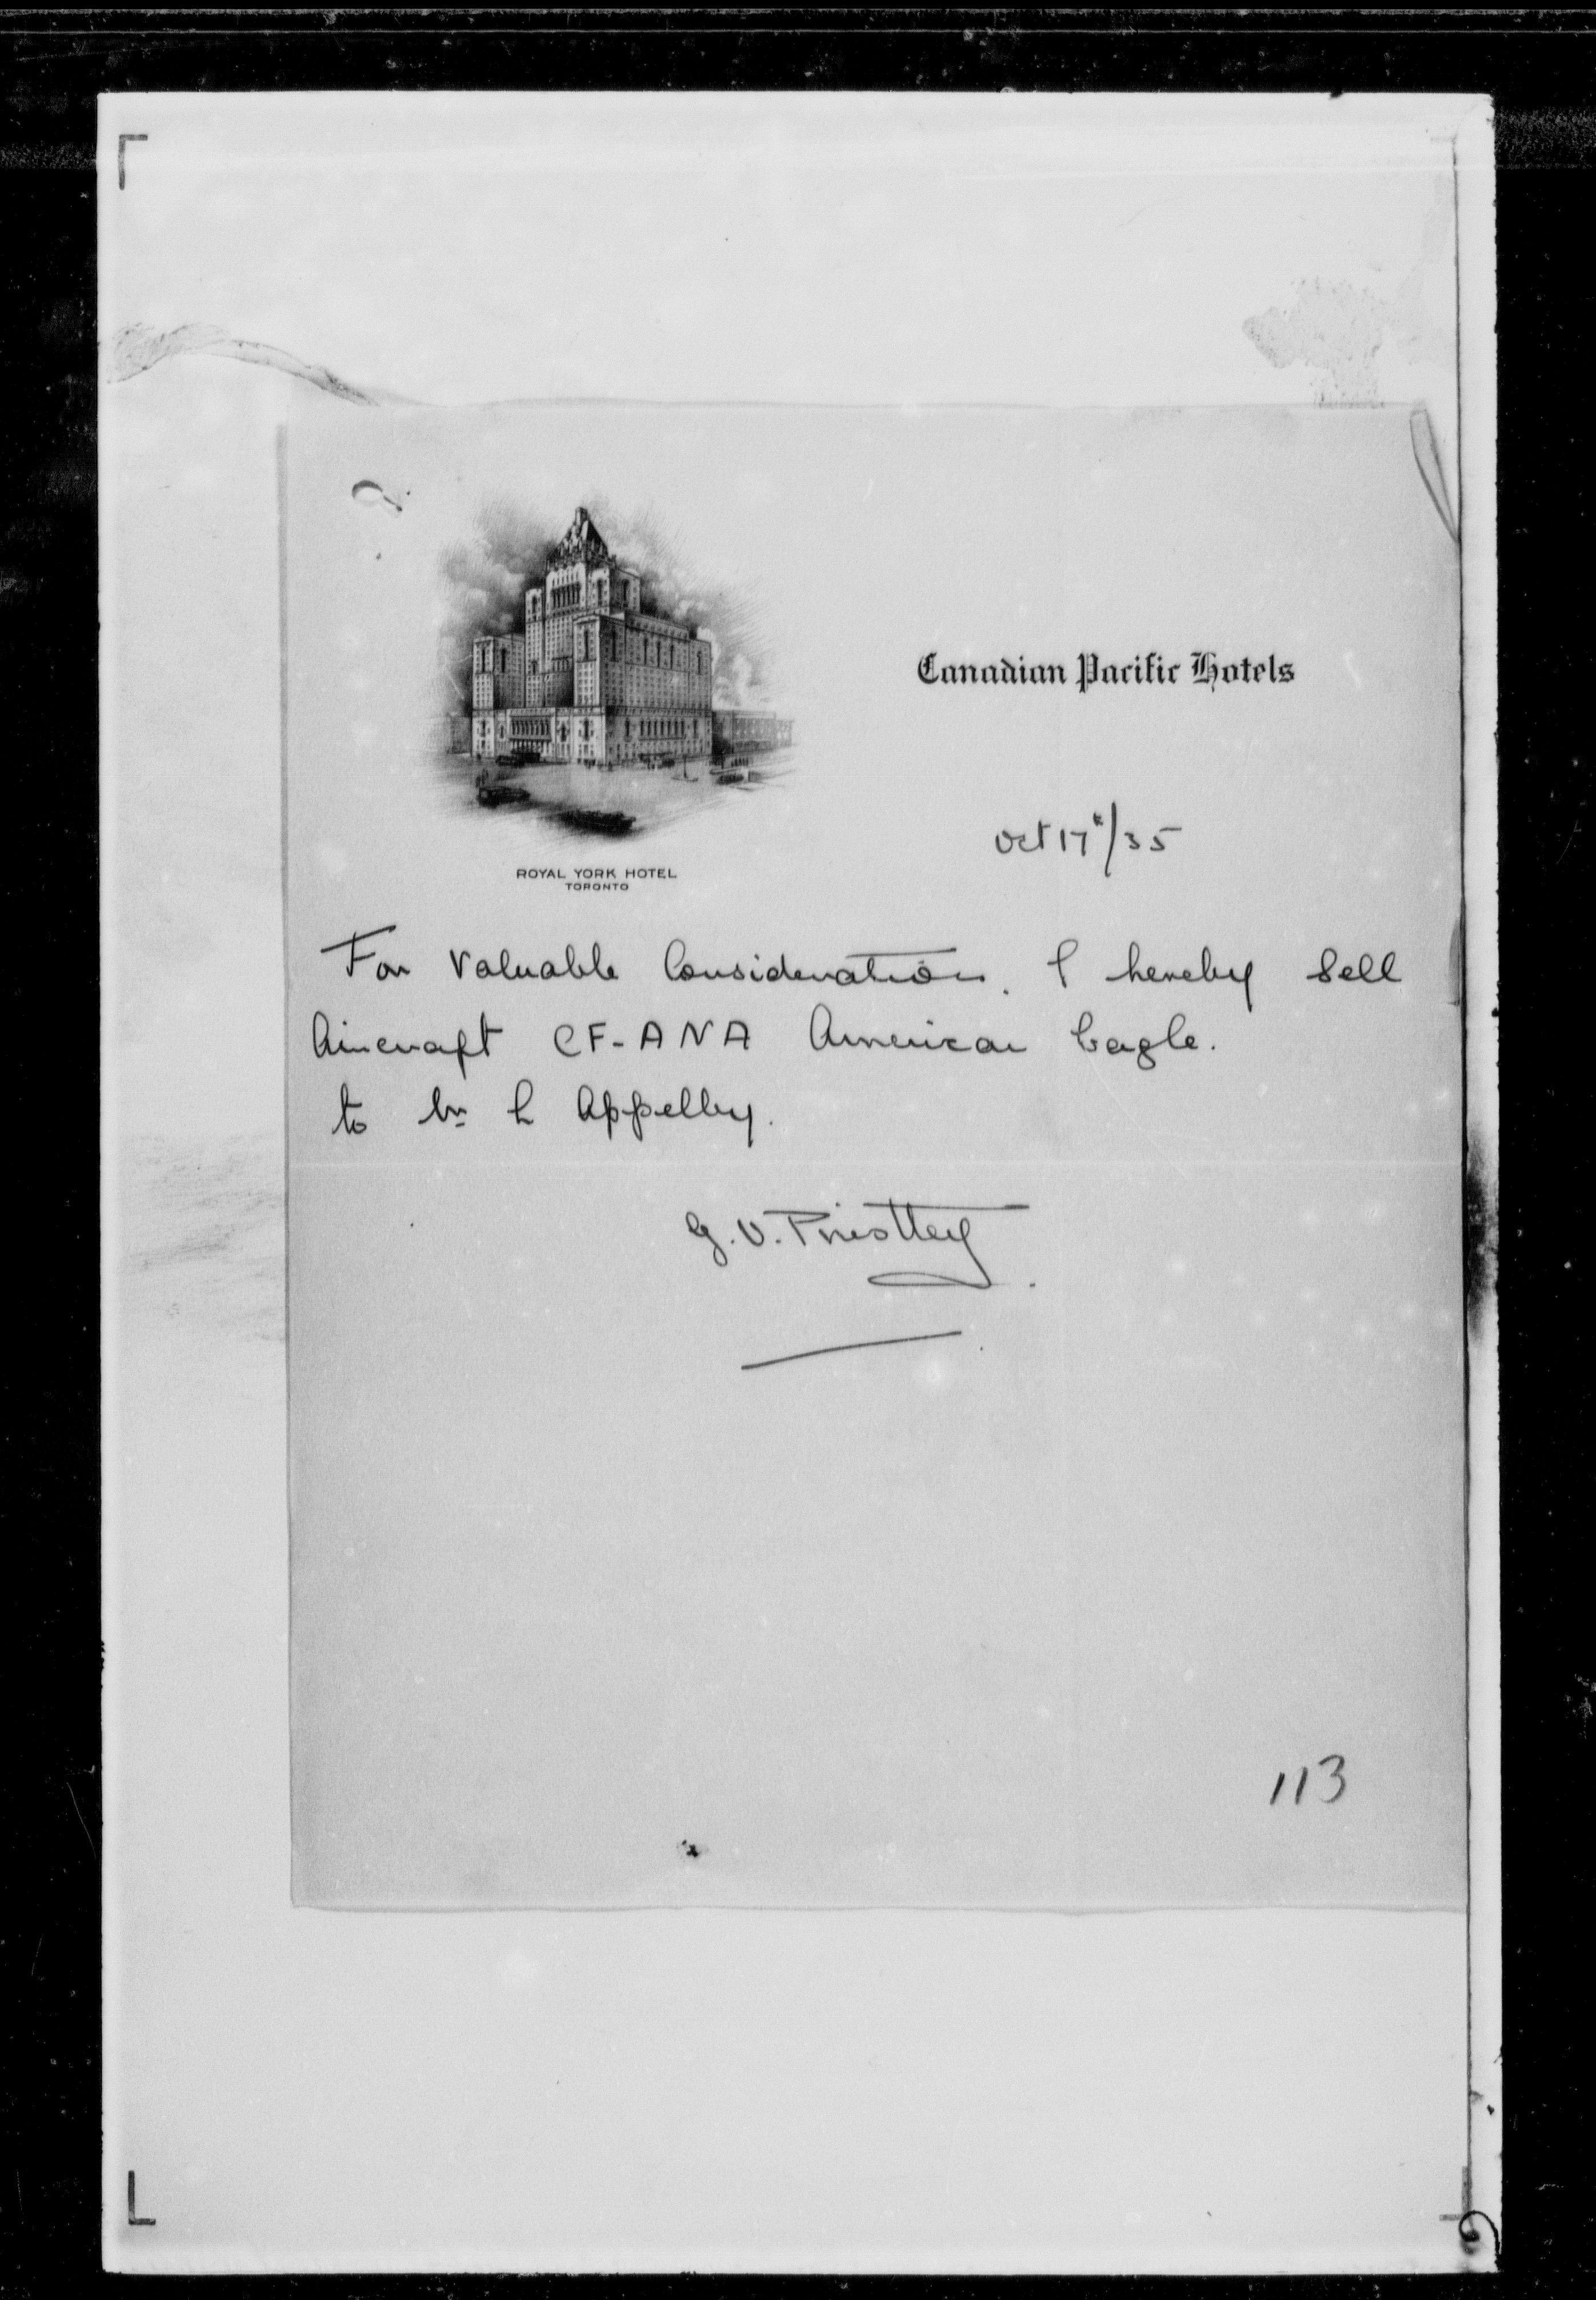 Canadian Pacific Hotels
Oct 17t/35
ROYAL YORK HOTEL
TORONTO
For Valuable Consideration. I hereby Sell
Aircraft CF-ANA American Eagle.
to Mr L Appelby.
G.V. Priestley
113